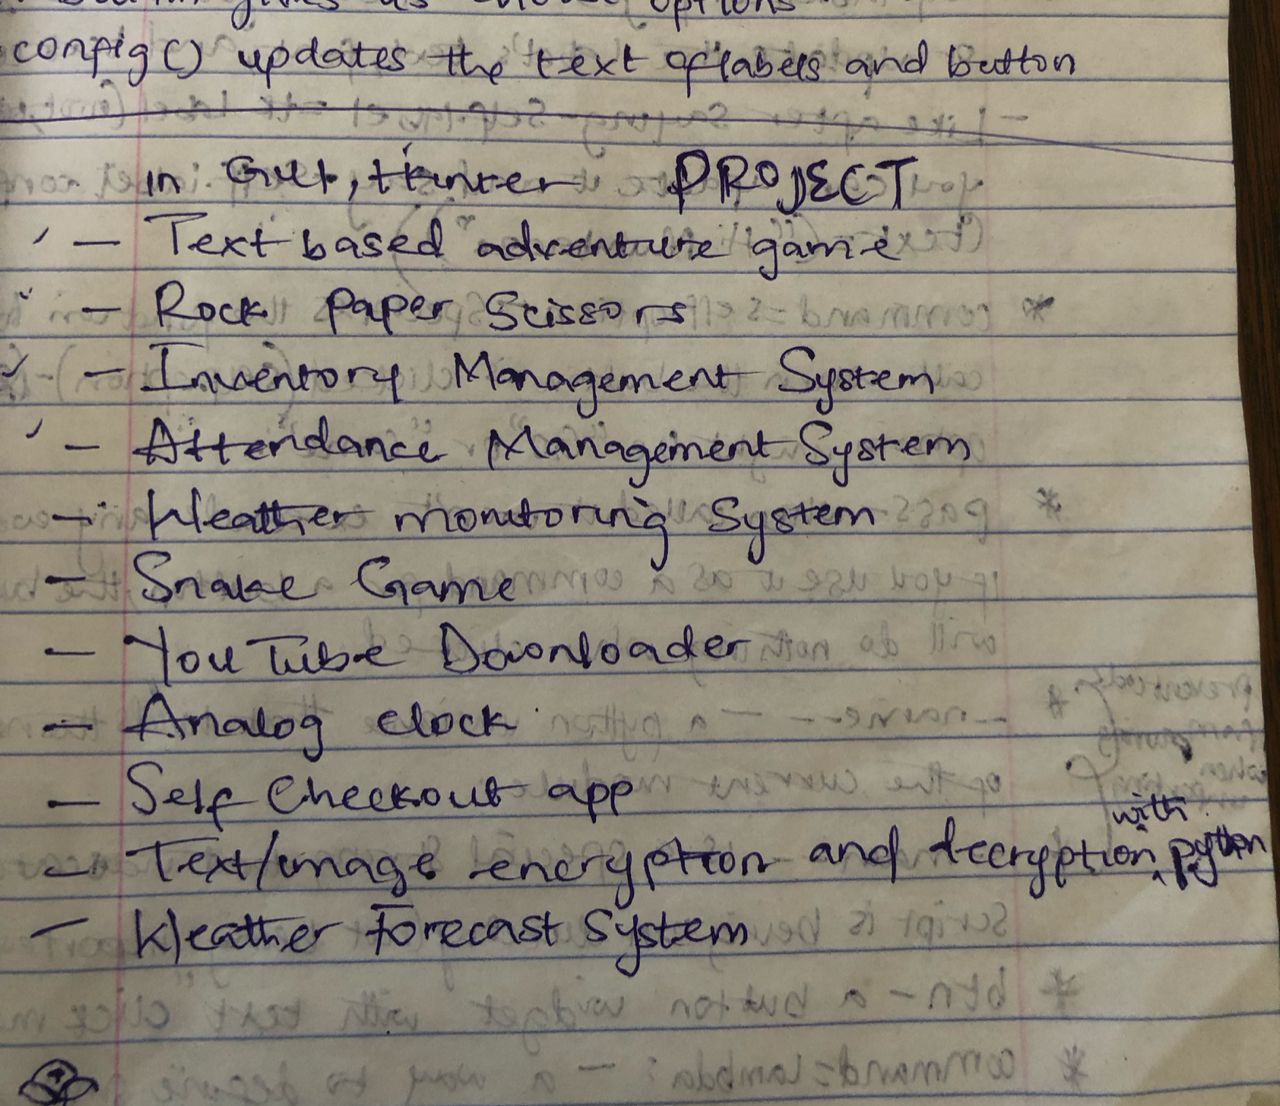 gives us options
config() updates the text of labels and button
in GUI, tkinter PROJECT
✓ — Text based adventure game
✓ — Rock Paper Scissors
✓ — Inventory Management System
✓ — Attendance Management System
— Weather monitoring System
— Snake Game
— YouTube Downloader
— Analog clock
— Self Checkout app
— Text/image encryption and decryption with python
— Weather Forecast System